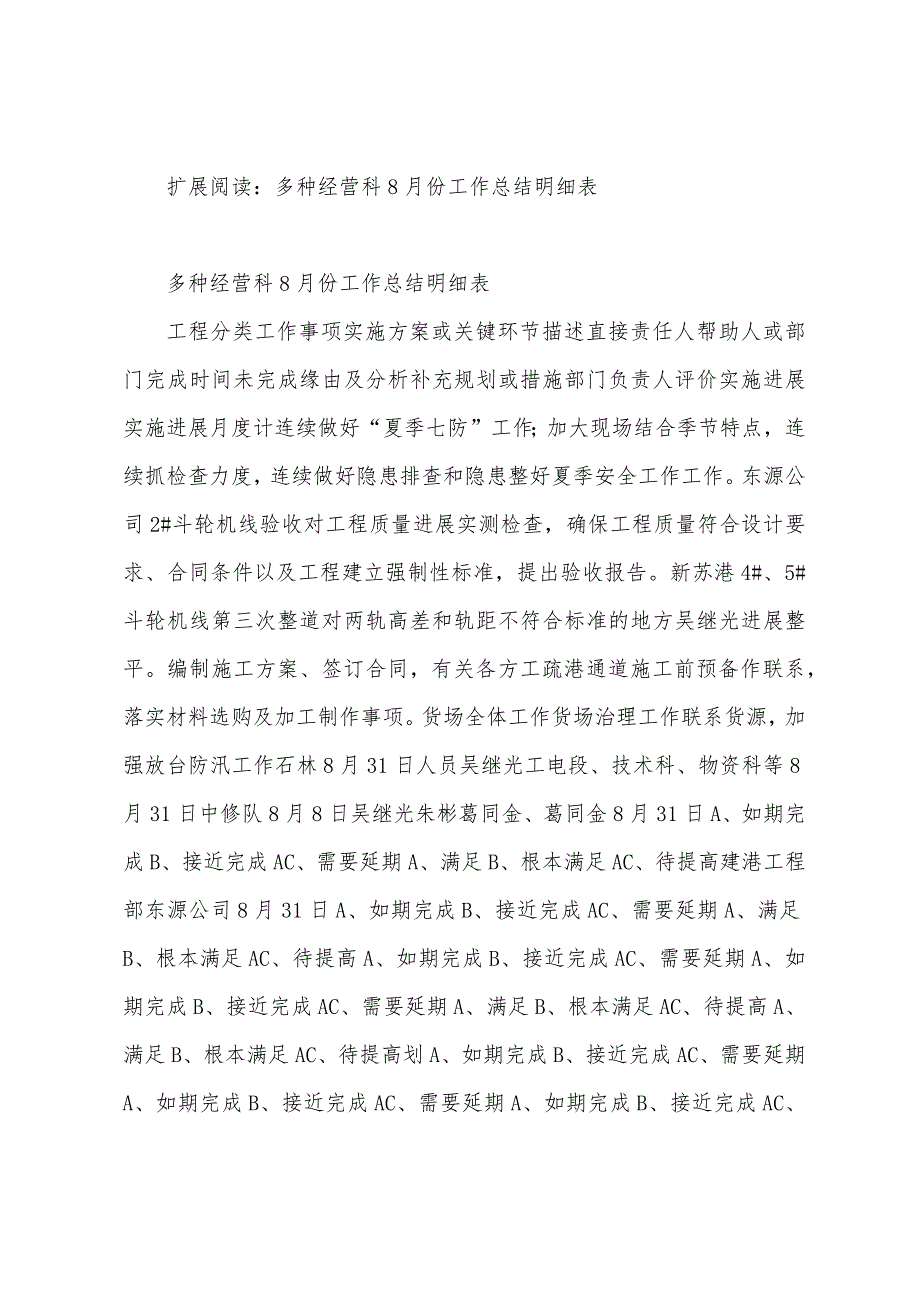 扩展阅读：多种经营科 8 月份工作总结明细表
多种经营科 8 月份工作总结明细表
工程分类工作事项实施方案或关键环节描述直接责任人帮助人或部
门完成时间未完成缘由及分析补充规划或措施部门负责人评价实施进展
实施进展月度计连续做好“夏季七防”工作；加大现场结合季节特点，连
续抓检查力度，连续做好隐患排查和隐患整好夏季安全工作工作。东源公
司 2#斗轮机线验收对工程质量进展实测检查，确保工程质量符合设计要
求、合同条件以及工程建立强制性标准，提出验收报告。新苏港 4#、5#
斗轮机线第三次整道对两轨高差和轨距不符合标准的地方吴继光进展整
平。编制施工方案、签订合同，有关各方工疏港通道施工前预备作联系，
落实材料选购及加工制作事项。货场全体工作货场治理工作联系货源，加
强放台防汛工作石林 8 月 31 日人员吴继光工电段、技术科、物资科等 8
月 31 日中修队 8 月 8 日吴继光朱彬葛同金、葛同金 8 月 31 日 A、如期完
成 B、接近完成 AC、需要延期 A、满足 B、根本满足 AC、待提高建港工程
部东源公司 8 月 31 日 A、如期完成 B、接近完成 AC、需要延期 A、满足
B、根本满足 AC、待提高 A、如期完成 B、接近完成 AC、需要延期 A、如
期完成 B、接近完成 AC、需要延期 A、满足 B、根本满足 AC、待提高 A、
满足 B、根本满足 AC、待提高划 A、如期完成 B、接近完成 AC、需要延期
A、如期完成 B、接近完成 AC、需要延期 A、如期完成 B、接近完成 AC、